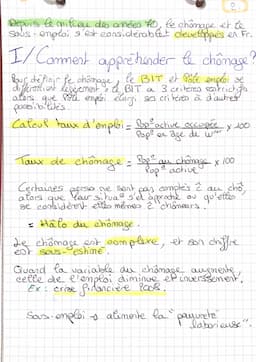 2
Depuis le milieu des années 70, le chômage et le
sous-emploi s'est considérablmt développés en Fr.
I/ Comment appréhender le chômage?
Pour définir le chômage, le BIT et Pôle emploi se
diffèrent légèrement : le BIT a 3 critères restrictifs
alors que Pôle emploi élargi ses critères à d'autres
possibilités.
Calcul taux d'emploi = Pop° active occupée x 100
Pop° en âge de
Taux de chômage = Pop° au chômage x 100
Pop° active
Certaines perso ne sont pas comptés à au chô,
alors que leur situa° s'en approche ou qu'elles
se considèrent elles mêmes chômeurs.
= Halo du chômage.
Le chômage est complexe, et son chiffre
est sous-estimé.
Quand la variable du chômage augmente,
celle de l'emploi diminue et inversement.
Ex : crise financière 2008.
Sous-emploi → alimente la "pauvreté
laborieuse".